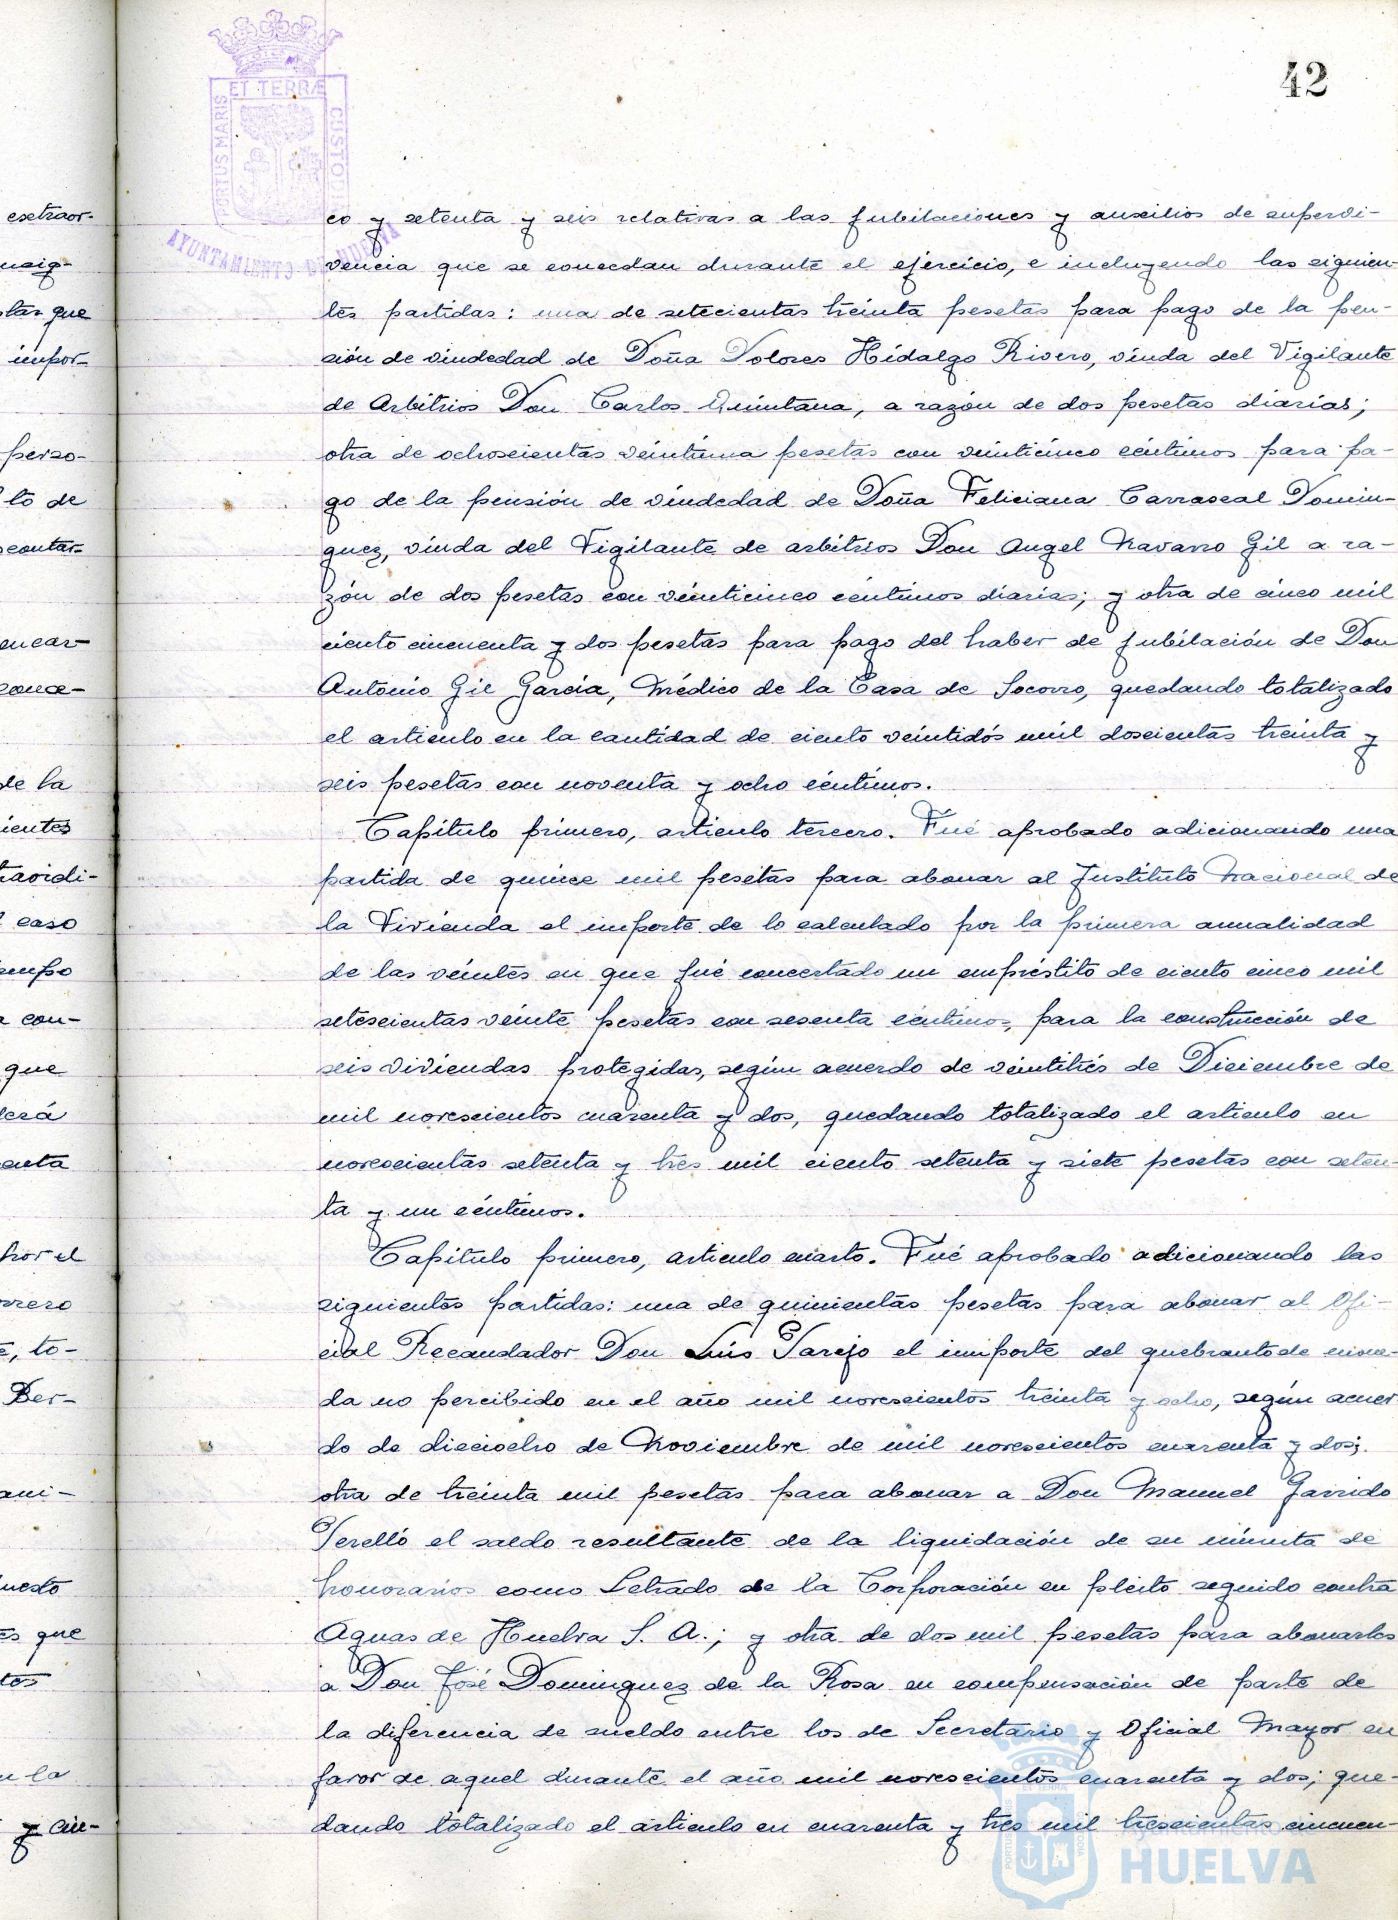 42
PORTUS MARIS ET TERRÆ CUSTODIA
AYUNTAMIENTO DE HUELVA
co y setenta y seis relativas a las jubilaciones y auxilios de supervi-
vencia que se concedan durante el ejercicio, e incluyendo las siguien-
tes partidas: una de setecientas treinta pesetas para pago de la pen-
sión de viudedad de Doña Dolores Hidalgo Rivero, viuda del Vigilante
de Arbitrios Don Carlos Quintana, a razón de dos pesetas diarias;
otra de ochocientas veintiuna pesetas con veinticinco céntimos para pa-
go de la pensión de viudedad de Doña Feliciana Carrascal Domin-
guez, viuda del Vigilante de arbitrios Don Angel Navarro Gil a ra-
zón de dos pesetas con veinticinco céntimos diarias; y otra de cinco mil
ciento cincuenta y dos pesetas para pago del haber de jubilación de Don
Antonio Gil García, Médico de la Casa de Socorro, quedando totalizado
el articulo en la cantidad de ciento veintidós mil doscientas treinta y
seis pesetas con noventa y ocho céntimos.
Capítulo primero, articulo tercero. Fué aprobado adicionando una
partida de quince mil pesetas para abonar al Instituto Nacional de
la Vivienda el importe de lo calculado por la primera anualidad
de las veintes en que fué concertado un empréstito de ciento cinco mil
setescientas veinte pesetas con sesenta céntimos, para la construcción de
seis viviendas protegidas, según acuerdo de veintitrés de Diciembre de
mil novescientos cuarenta y dos, quedando totalizado el articulo en
novescientas setenta y tres mil ciento setenta y siete pesetas con seten-
ta y un céntimos.
Capítulo primero, articulo cuarto. Fué aprobado adicionando las
siguientes partidas: una de quinientas pesetas para abonar al Ofi-
cial Recaudador Don Luis Tarejo el importe del quebranto de mone-
da no percibido en el año mil novescientos treinta y ocho, según acuer
do de dieciocho de Noviembre de mil novescientos cuarenta y dos;
otra de treinta mil pesetas para abonar a Don Manuel Garrido
Perelló el saldo resultante de la liquidación de su minuta de
honorarios como Letrado de la Corporación en pleito seguido contra
Aguas de Huelva S. A.; y otra de dos mil pesetas para abonarlas
a Don José Dominguez de la Rosa en compensación de parte de
la diferencia de sueldo entre los de Secretario y Oficial Mayor en
favor de aquel durante el año mil novescientos cuarenta y dos; que-
dando totalizado el artículo en cuarenta y tres mil trescientas cincuen-
extraor-
que
impor-
perso-
to de
encar-
conce-
de la
ientes
caso
a con-
que
por el
to-
Ber-
es que
la
y cin-
Ayuntamiento de
HUELVA